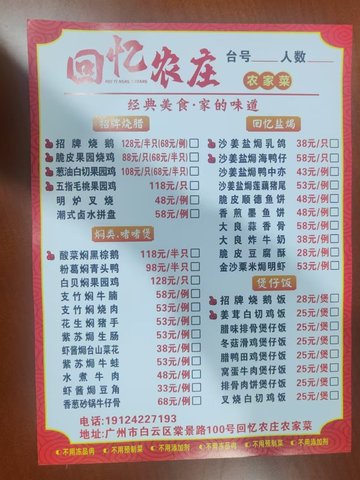 回忆农庄
台号 人数
农家菜
经典美食·家的味道
招牌烧腊
招牌烧鹅 128元/半只(68元/例)
脆皮果园烧鸡 88元/只(58元/例)
葱油白切果园鸡 108元/只(68元/例)
五指毛桃果园鸡 118元/只
明炉叉烧 48元/例
潮式卤水拼盘 58元/例
焖类.啫啫煲
酸菜焖黑棕鹅 118元/半只
粉葛焖青头鸭 98元/半只
白贝焖果园鸡 128元/只
支竹焖牛腩 58元/例
支竹焖烧肉 53元/例
花生焖猪手 53元/例
紫苏焖生肠 53元/例
虾酱焗台山菜花 38元/例
紫苏焖牛蛙 53元/例
水煮牛肉 48元/例
虾酱焗豆角 33元/例
香葱砂锅牛仔骨 68元/例
回忆盐焗
沙姜盐焗乳鸽 38元/只
沙姜盐焗海鸭仔 58元/只
沙姜盐焗鸭中亦 43元/例
沙姜盐焗莲藕猪尾 53元/例
脆皮顺德鱼饼 48元/例
香煎墨鱼饼 48元/例
大良蒜香骨 58元/例
大良炸牛奶 38元/例
脆皮豆腐酥 28元/例
金沙粟米焗明虾 53元/例
煲仔饭
招牌烧鹅饭 28元/煲
姜茸白切鸡饭 25元/煲
腊味排骨煲仔饭 25元/煲
冬菇滑鸡煲仔饭 25元/煲
腊鸭田鸡煲仔饭 25元/煲
窝蛋牛肉煲仔饭 25元/煲
排骨肉饼煲仔饭 25元/煲
叉烧白切鸡饭 25元/煲
电话:19124227193
地址:广州市白云区棠景路100号回忆农庄农家菜
不用冻品肉 不用预制菜 不用添加剂 不用冻品肉 不用预制菜 不用添加剂